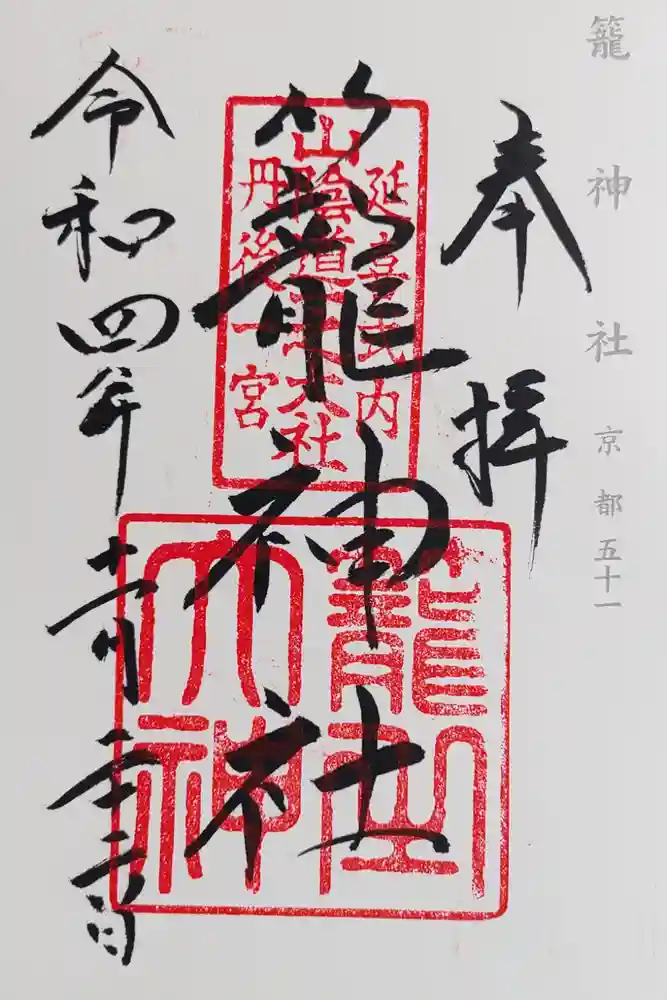 籠神社 京都五十一
奉拝
籠神社
延喜式内
山陰道 大社
丹後一宮
籠之
大神
令和四年